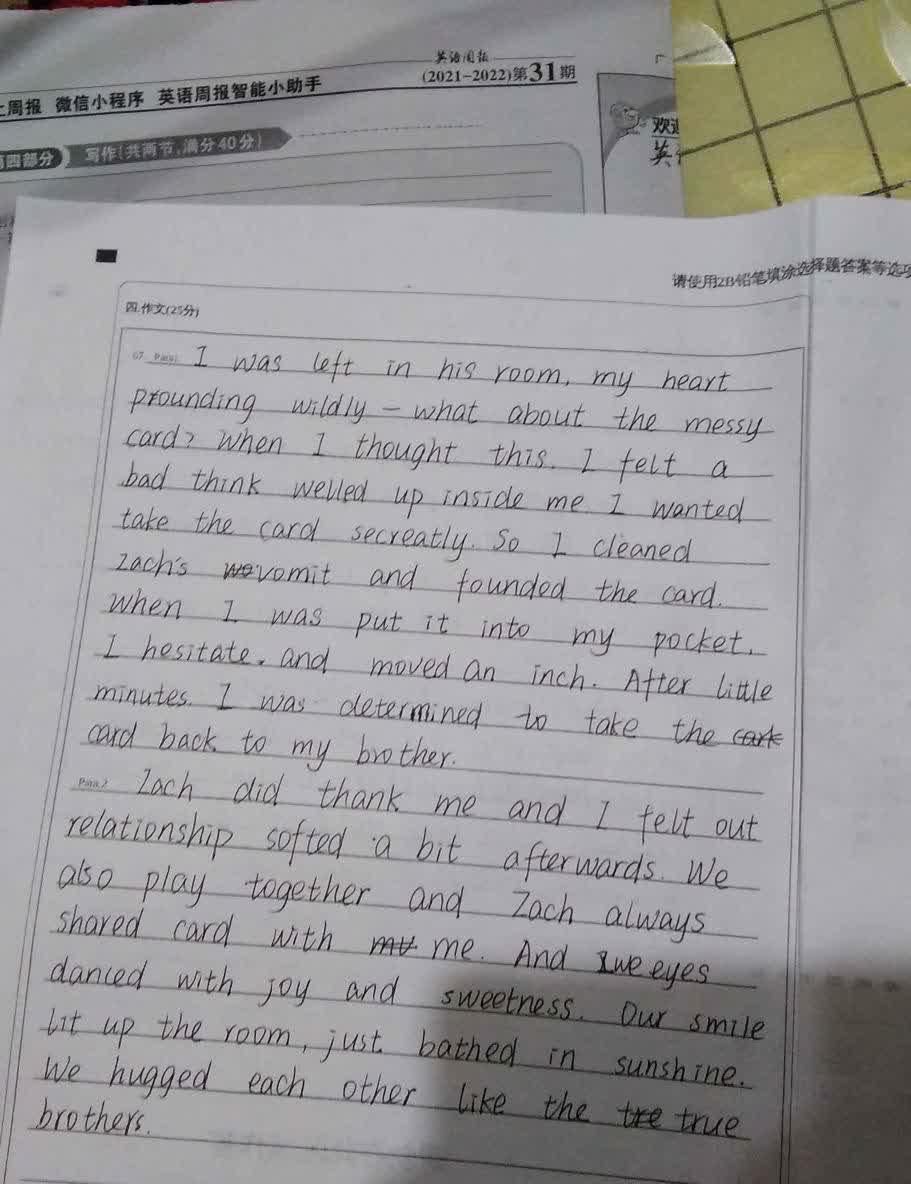 英语周报
(2021-2022)第31期
周报 微信小程序 英语周报智能小助手
第四部分 写作(共两节,满分40分)
欢迎
英
请使用2B铅笔填涂选择题答案等选项
四.作文(25分)
67. Para1 I was left in his room, my heart
prounding wildly - what about the messy
card? When I thought this. I felt a
bad think welled up inside me. I wanted
take the card secreatly. So I cleaned
Zach's vomit and founded the card.
When I was put it into my pocket,
I hesitate. and moved an inch. After little
minutes. I was determined to take the cark
card back to my brother.
Para2 Zach did thank me and I felt out
relationship softed a bit afterwards. We
also play together and Zach always
shared card with me. And we eyes
danced with joy and sweetness. Our smile
lit up the room, just bathed in sunshine.
We hugged each other like the tre true
brothers.